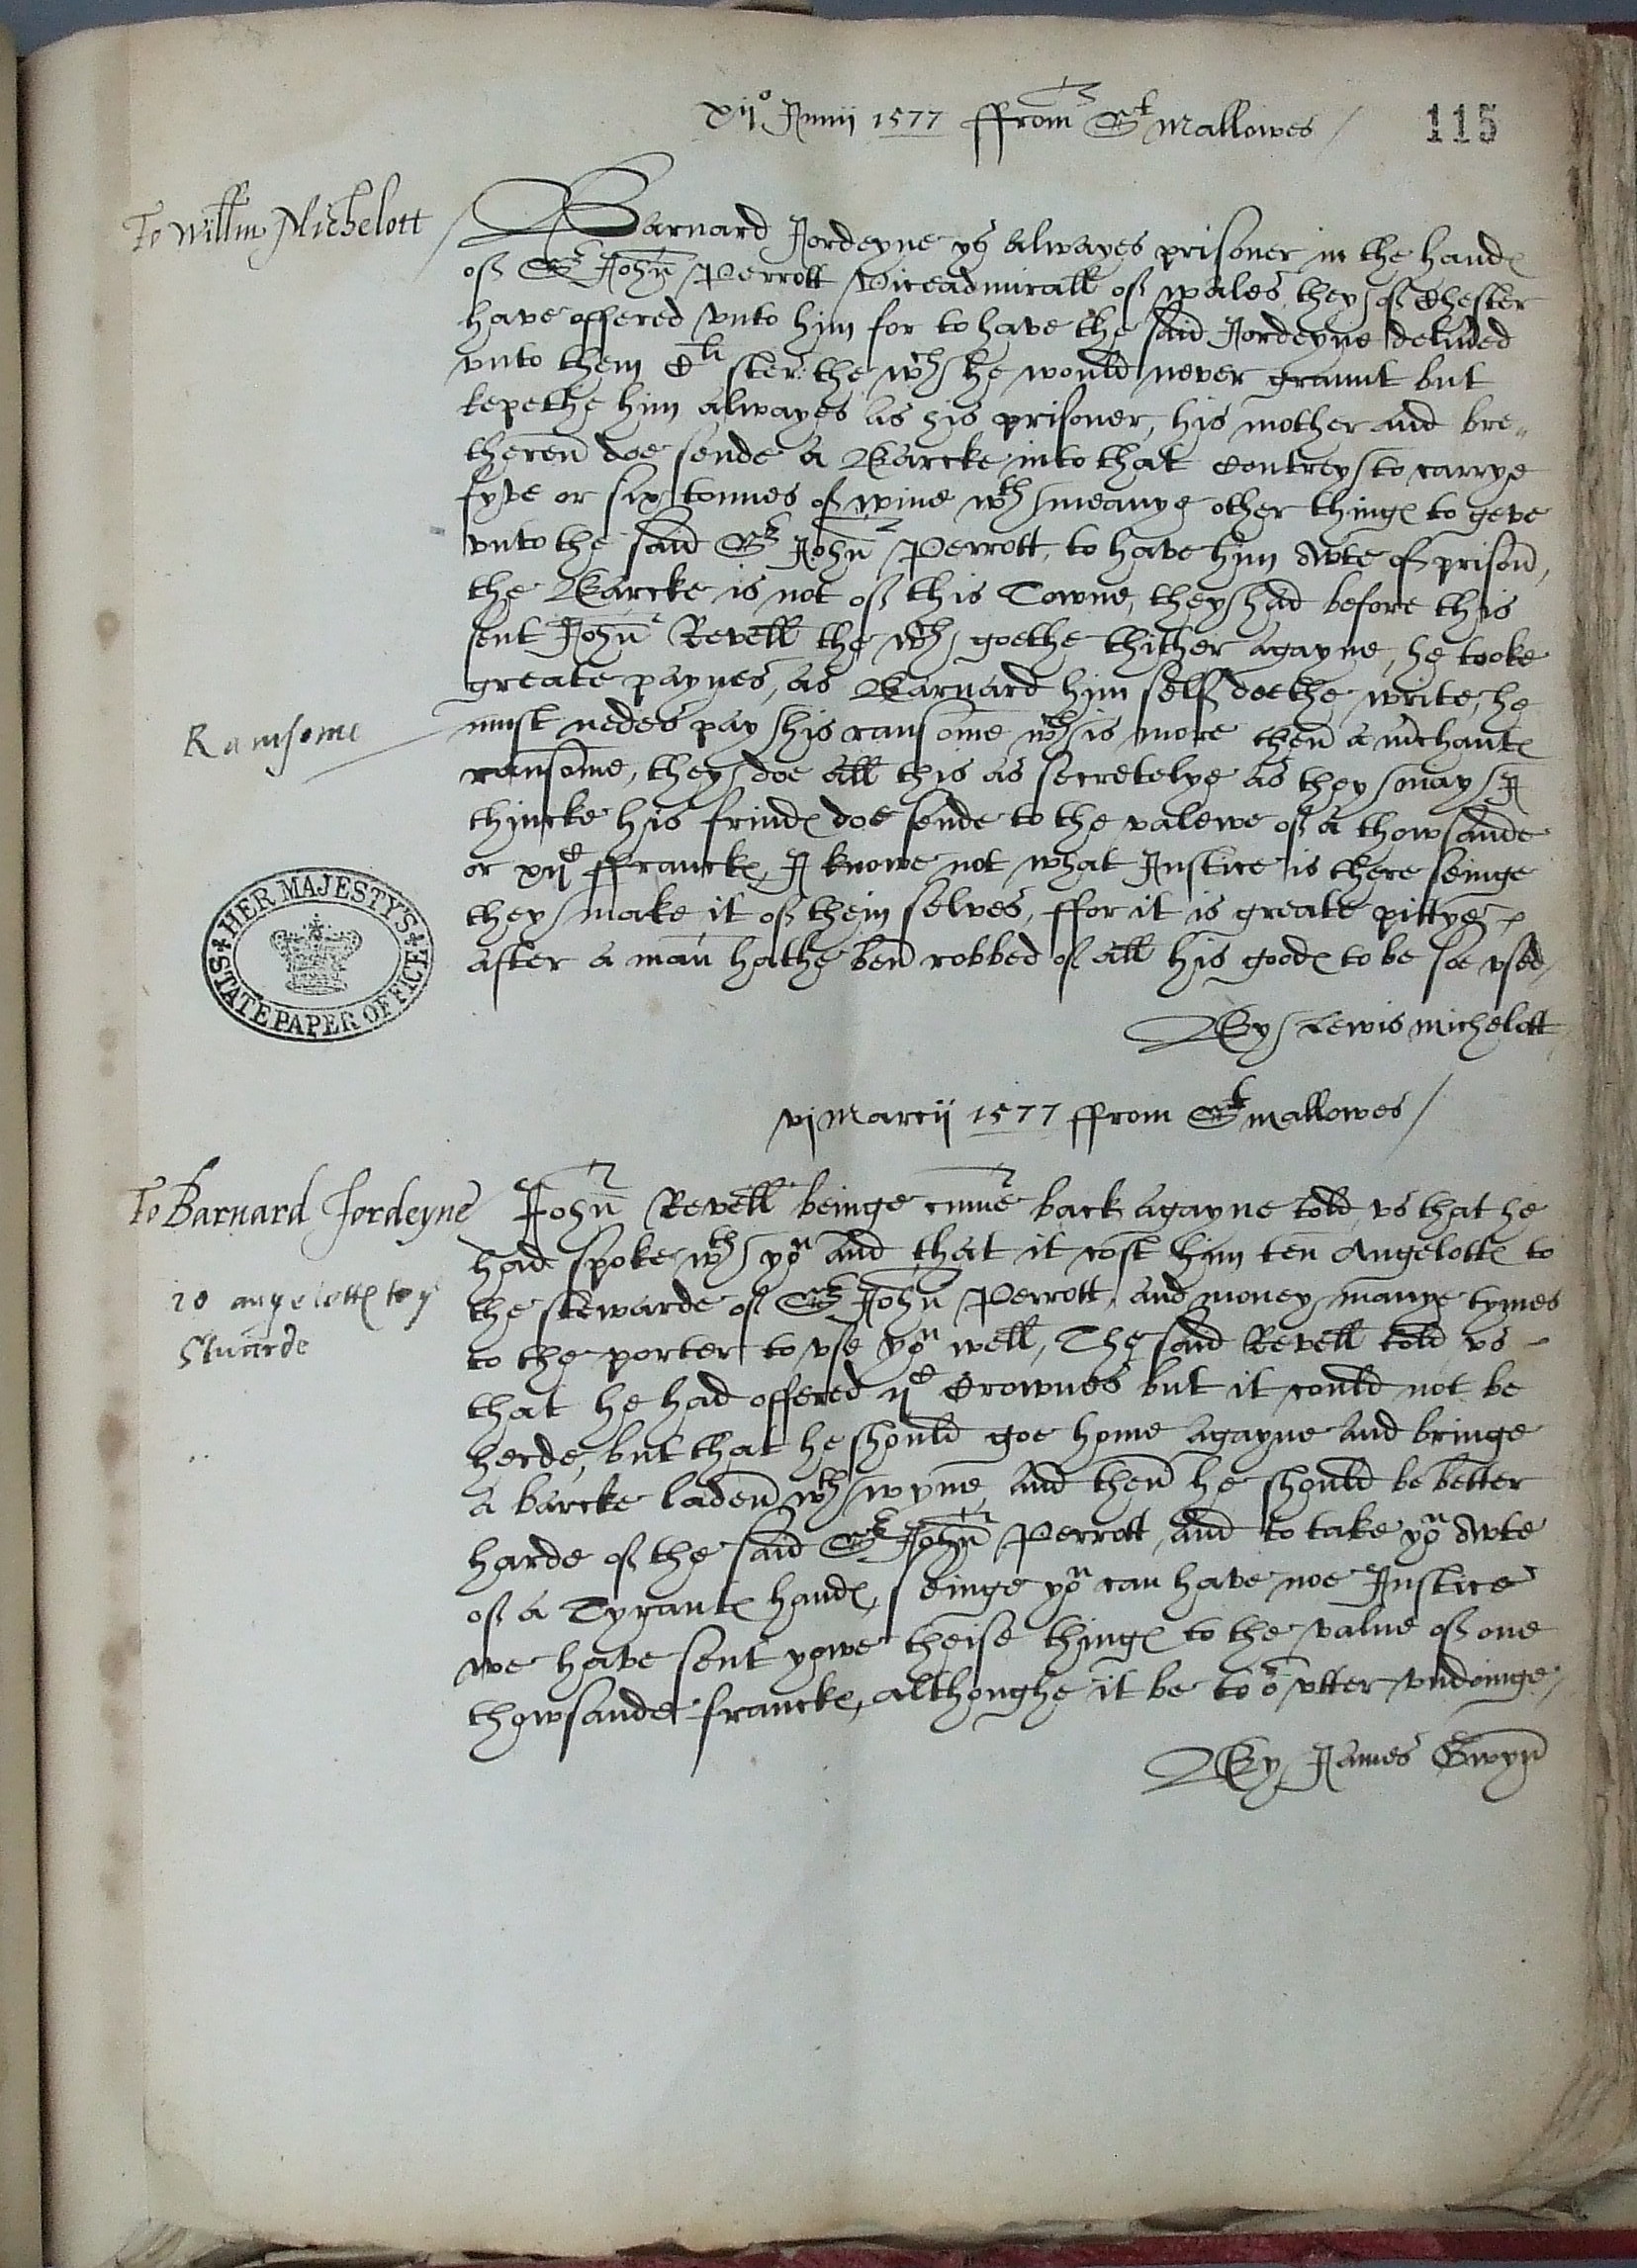 xij° Junij 1577 ffrom St Mallowes /
115
To Willm Michelott
Barnard Jordeyne ys alwayes prisoner in the hand
of Sr John Perrott viceadmirall of wales, they of Chester
have offered vnto him for to have the said Jordeyne deliúed
vnto them Cli ster: the wch he would never graunt but
kepethe him alwayes as his prisoner, his mother and bre„
theren doe sende a Barcke into that Contrey to carrye
fyve or six tonnes of wine wth meanye other things to geve
vnto the said Sr John Perrott, to have him owte of prison,
the Barcke is not of this Towne, they had before this
sent John Revell the wch goethe thither agayne, he tooke
greate paynes, as Barnard him self doethe write, he
Ransome
must nedes pay his ransome wch is more then a mchants
ransome, they doe all this as secretelye as they may I
thincke his frinds doe sende to the valewe of a thowsande
or xijC ffrancks, I knowe not what Justice is there seinge
they make it of them selves, ffor it is greate pittye
after a man hathe ben robbed of all his goods to be soe vsed /
HER MAJESTY'S STATE PAPER OFFICE
By Lewis Michelott
vj Marcij 1577 ffrom St mallowes /
To Barnard Jordeyne
John Revell beinge cume back agayne told vs that he
had spoke wth you and that it cost him ten Angelotts to
10 angelotts to ye
the stewarde of Sr John Perrott, and money manye tymes
Stuarde
to the porter to vse you well, The said Revell told vs
that he had offered ijC Crownes but it could not be
herde, but that he should goe home agayne and bringe
a barcke laden wth wyne, and then he should be better
harde of the said Sr John Perrott, and to take you owte
of a Tyrants hands, seinge you can have noe Justice
we have sent yowe theise things to the value of one
thowsande francks, althoughe it be to or vtter vndoinge /
By James Gwyn